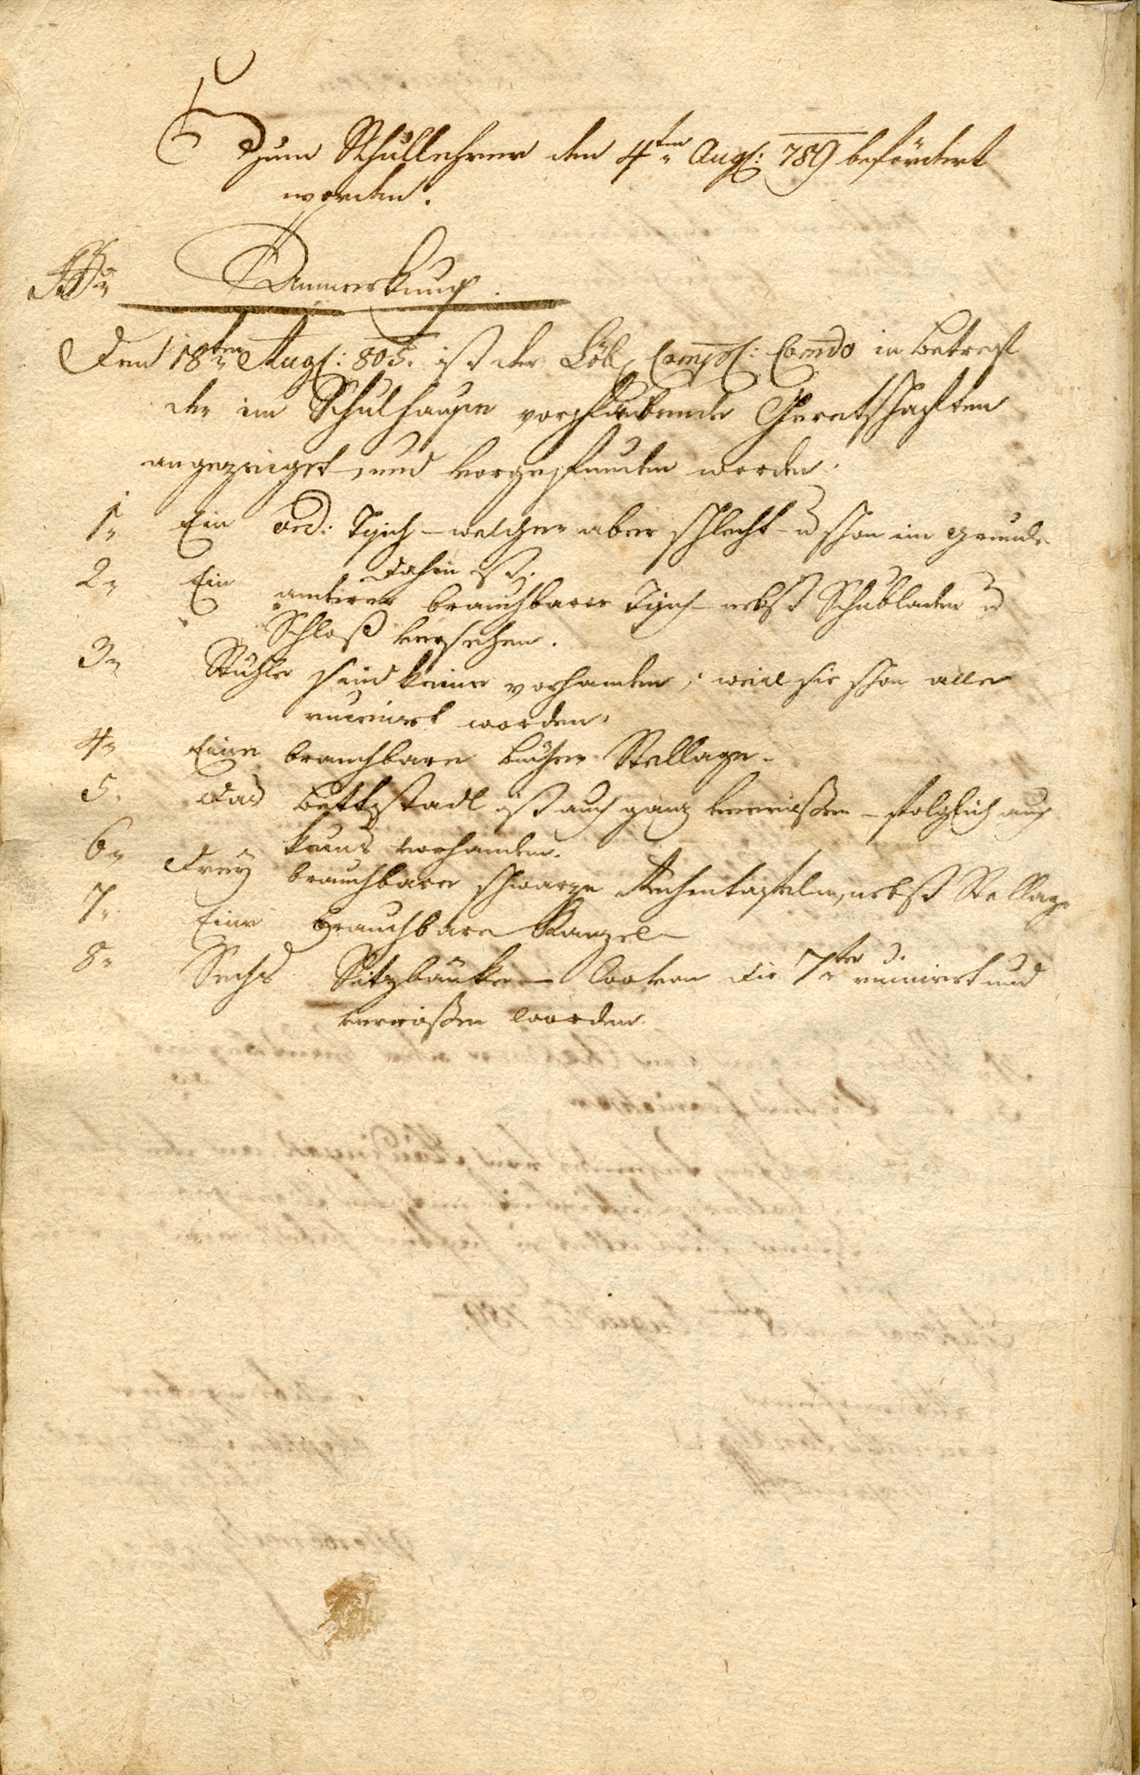 Zum Schullehrer den 4ten Aug: 789 befördert
worden.
Anmerkung.
Den 18ten Aug: 805. ist der Löb. Comp: Comdo in Betref
der im Schulhause vorfindende Geretschaften
angezeiget, und vorgefunden worden.
1. Ein ord: Tisch – welcher aber schlecht u schon im grunde
dahin ist.
2. Ein anderer brauchbarer Tisch nebst Schubladen u
Schloß versehen.
3. Stühle sind keine vorhanden, weil sie schon alle
ruinirt worden.
4. Eine brauchbare bücher Stellage.
5. Das Bettstadl ist auch ganz verrissen – folglich auch
keins vorhanden.
6. Drey brauchbare schwarze Rechentafeln, nebst Stellage
7. Eine brauchbare Kanzel
8. Sechs Sitzbänke – die 7te ruinirt und
verrissen worden.